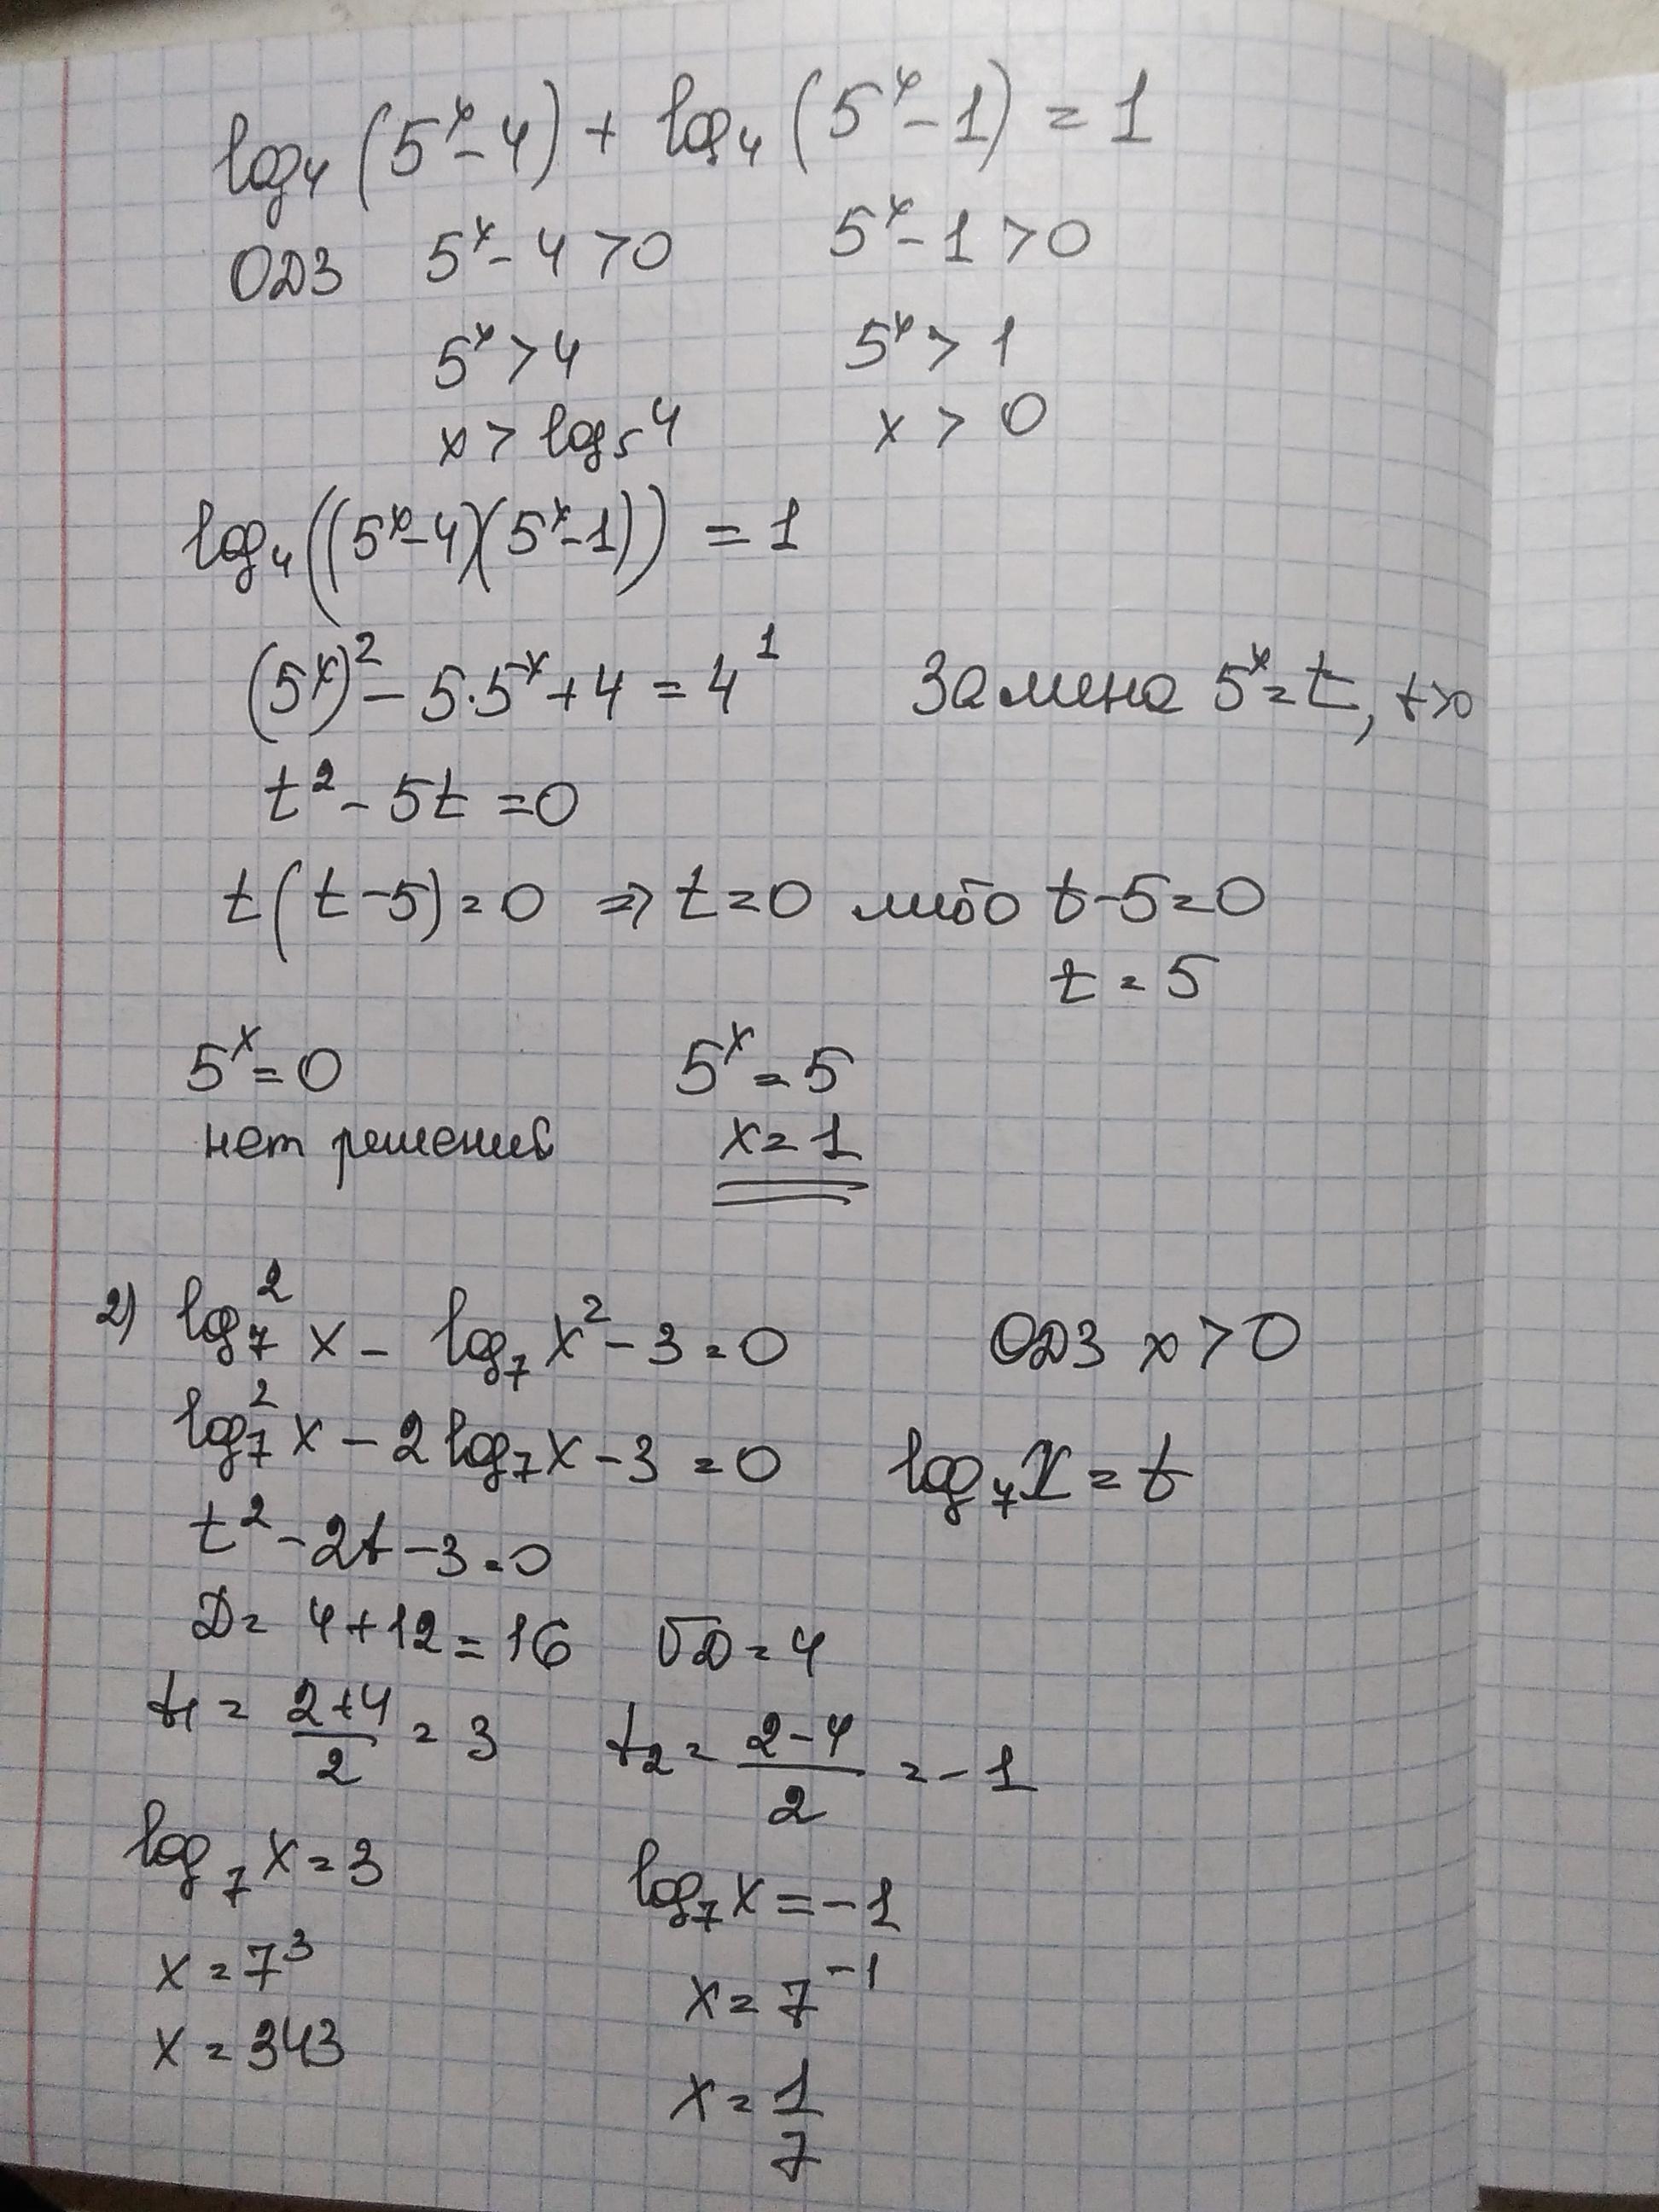 log₄(5ˣ-4) + log₄(5ˣ-1) = 1
ОДЗ 5ˣ-4>0 5ˣ-1>0
5ˣ>4 5ˣ>1
x>log₅4 x>0
log₄((5ˣ-4)(5ˣ-1)) = 1
(5ˣ)²-5·5ˣ+4=4¹ Замена 5ˣ=t, t>0
t²-5t=0
t(t-5)=0 ⇒ t=0 либо t-5=0
t=5
5ˣ=0 5ˣ=5
нет решений x=1
2) log₇²x - log₇x²-3=0 ОДЗ x>0
log₇²x-2log₇x-3=0 log₇x=t
t²-2t-3=0
D=4+12=16 √D=4
t₁=(2+4)/2=3 t₂=(2-4)/2=-1
log₇x=3 log₇x=-1
x=7³ x=7⁻¹
x=343 x=1/7